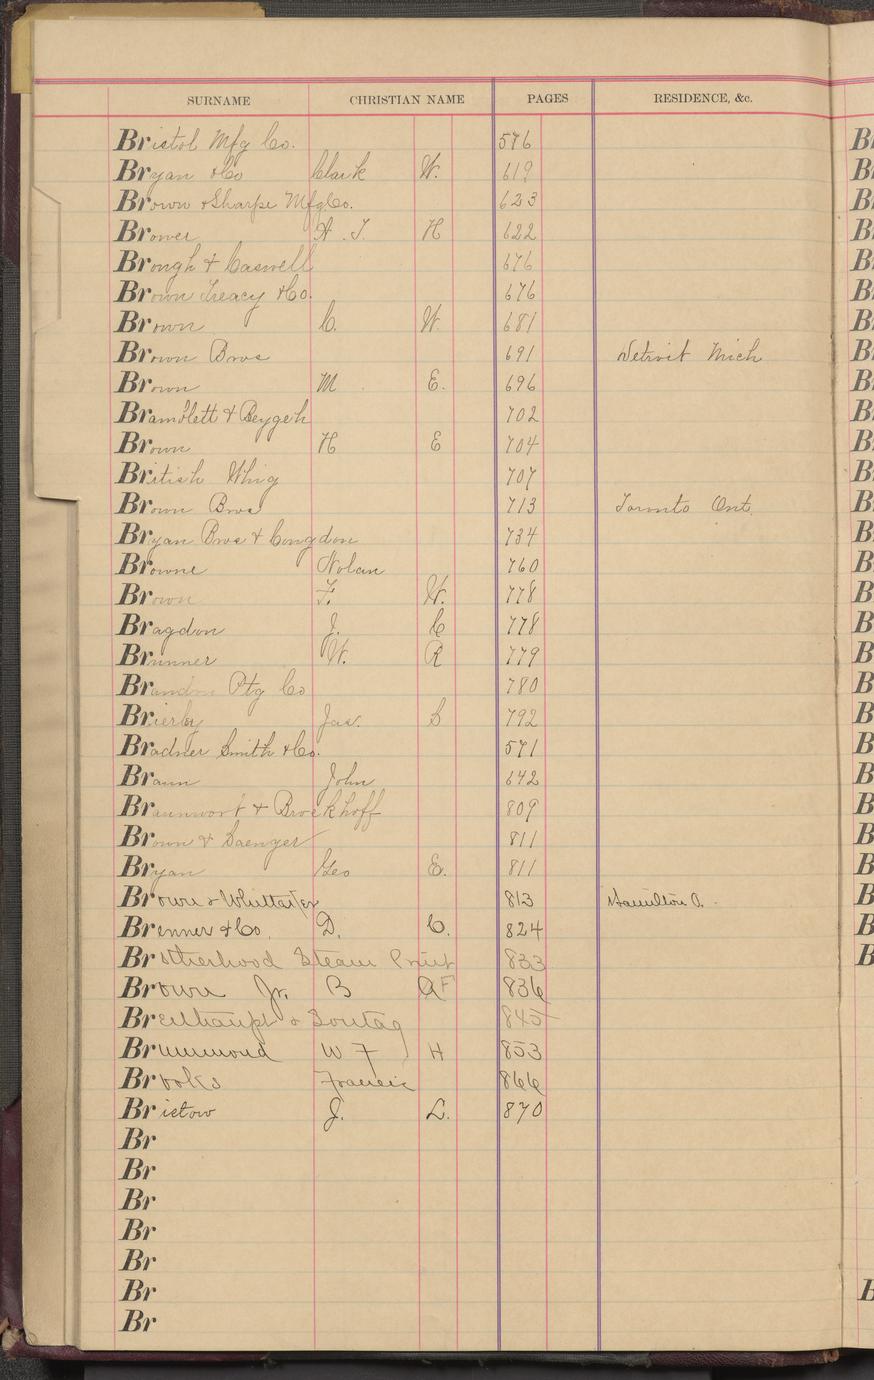 SURNAME CHRISTIAN NAME PAGES RESIDENCE, &c.
Bristol Mfg Co. 576
Bryan & Co Clark W. 619
Brown & Sharpe Mfg Co. 623
Brower A. T. H 622
Brough & Caswell 676
Brown Treacy & Co. 676
Brown C. W. 681
Brown Bros 691 Detroit Mich
Brown M. E. 696
Bramblett & Beygeh 702
Brown H E 704
British Whig 707
Brown Bros 713 Toronto Ont.
Bryan Bros & Congdon 734
Browne Nolan 760
Brown F. W. 778
Bragdon J. C 778
Brunner W. R 779
Brandon Ptg Co 780
Brierly Jas. S 792
Bradner Smith & Co. 571
Braun John 642
Braunwort & Brockhoff 809
Brown & Saenger 811
Bryan Geo E. 811
Brown & Whittaker 813 Hamilton O.
Brenner & Co. D. C. 824
Brotherhood Steam Print 833
Brown Jr. B AF 836
Breithaupt & Sontag 845
Brummond W F H 853
Brooks Francis 866
Bristow J. L. 870
Br
Br
Br
Br
Br
Br
Br